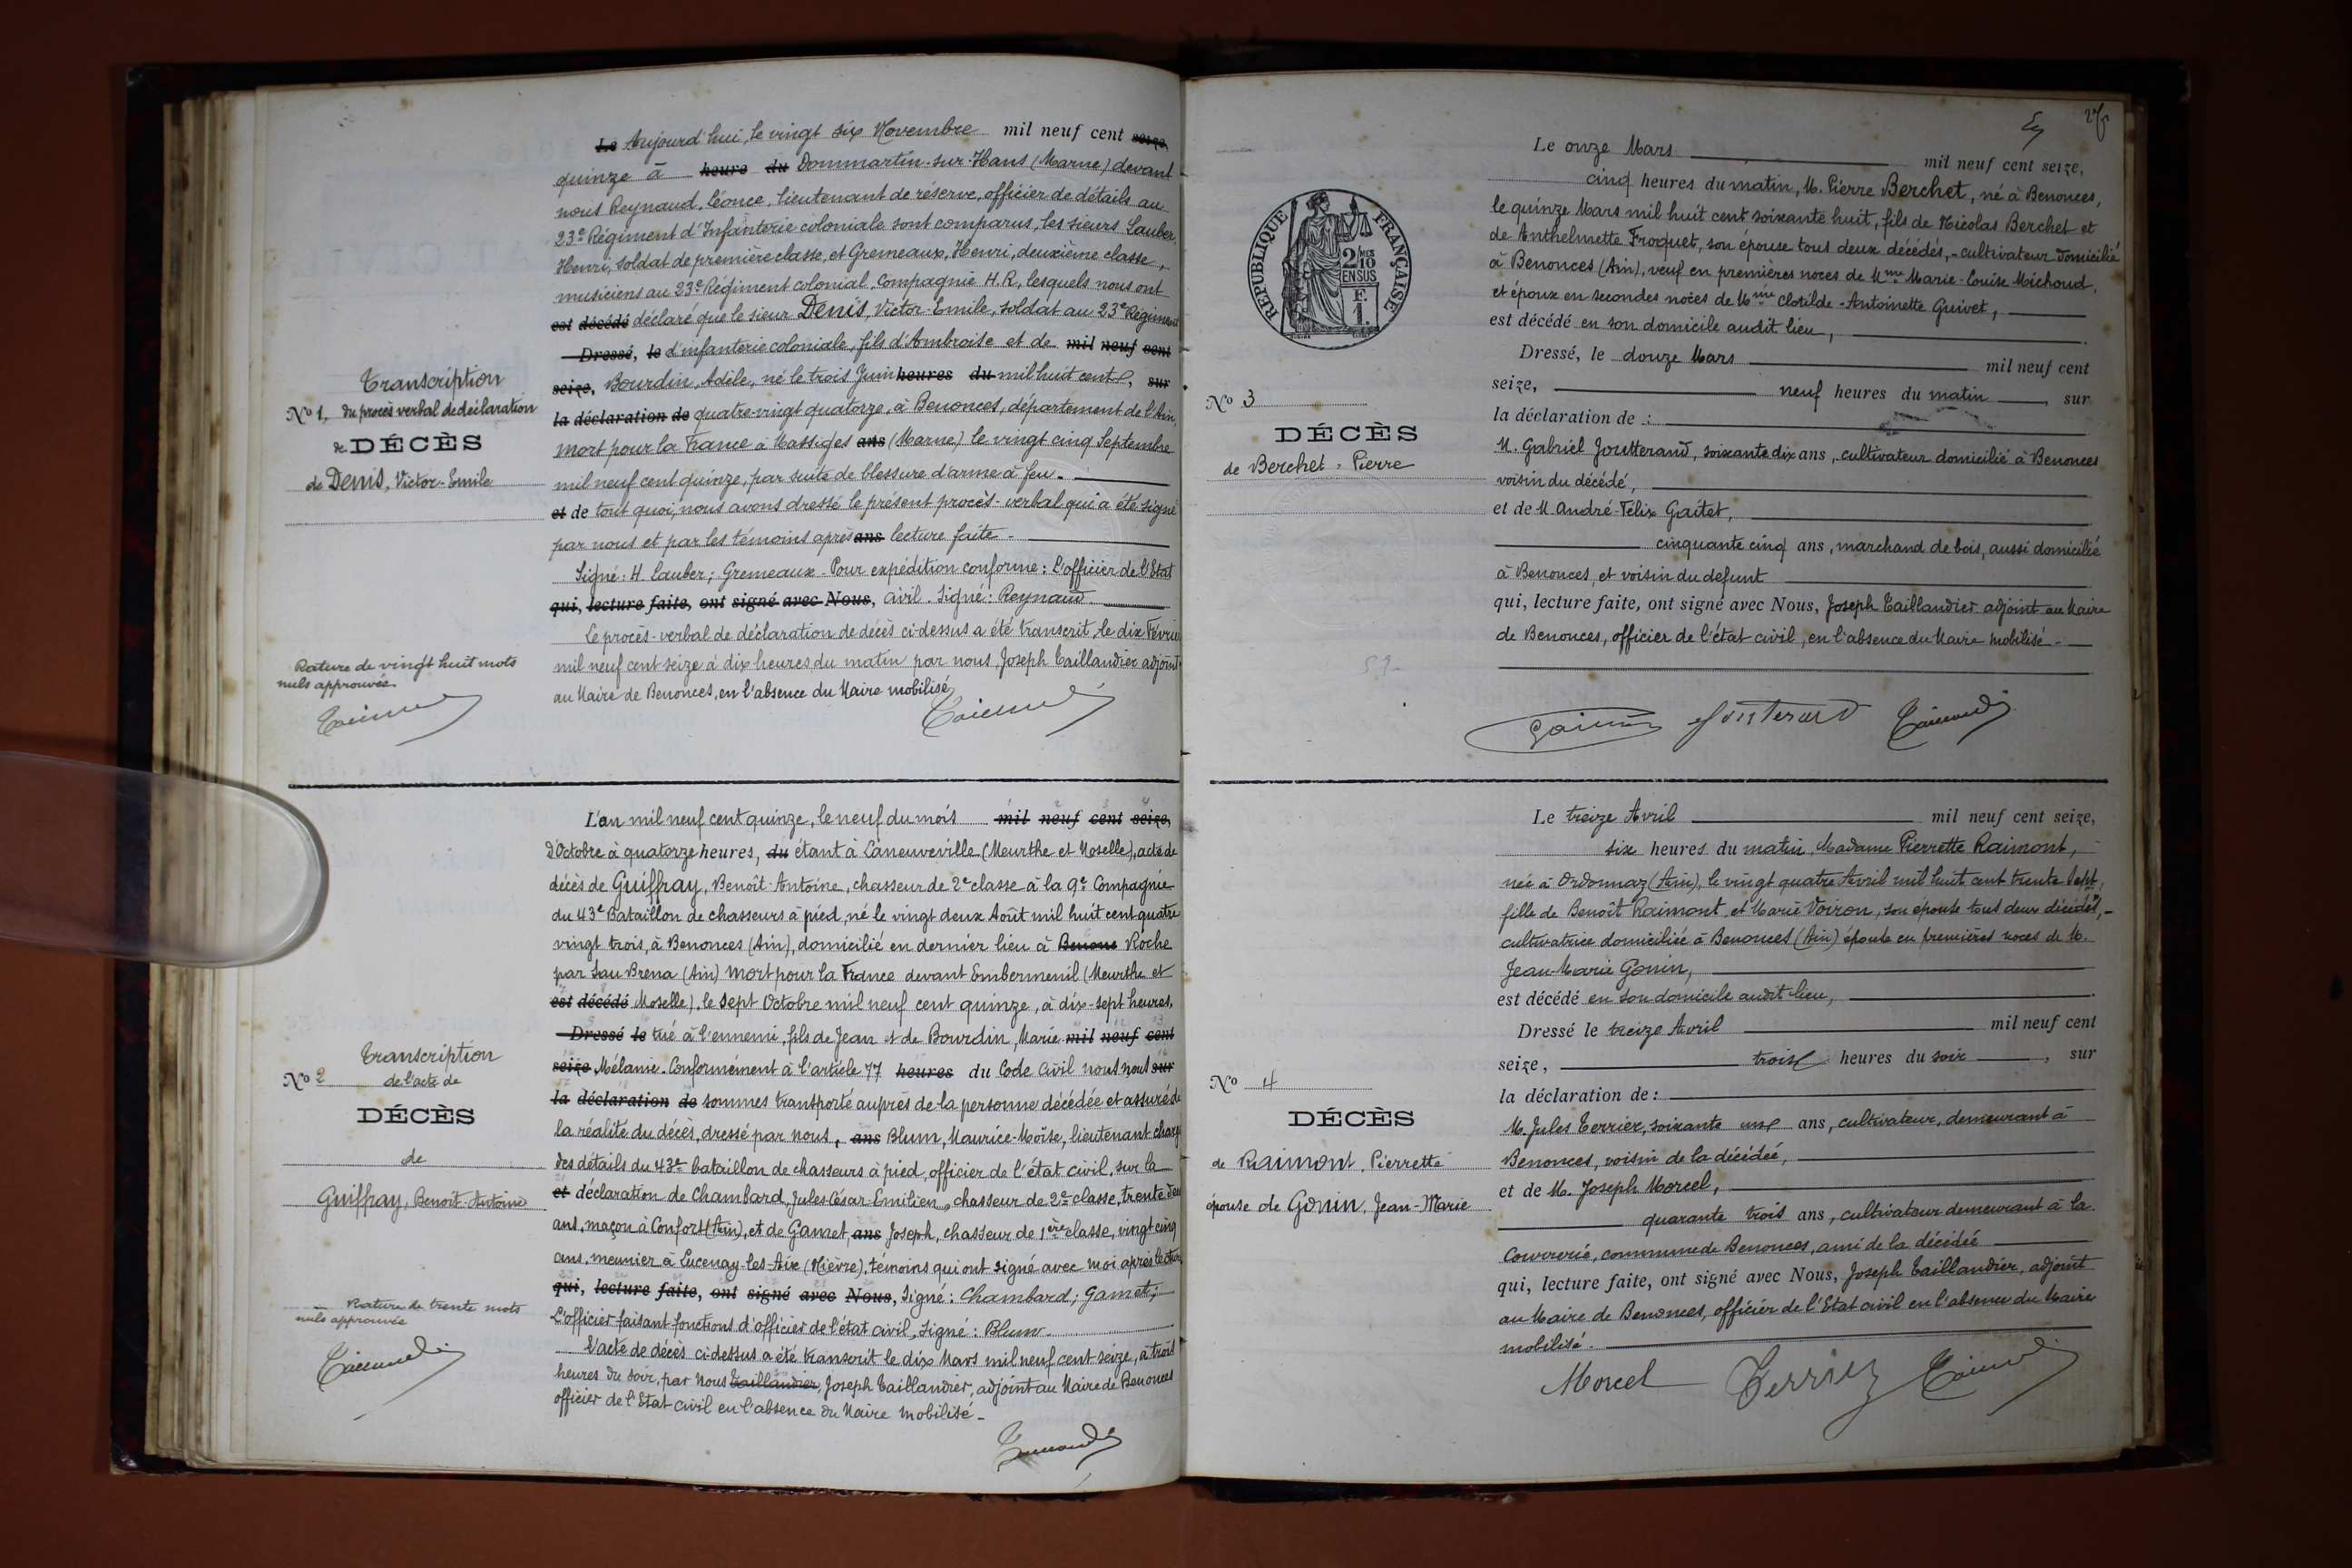 Le Aujourd'hui, le vingt six Novembre mil neuf cent seize,
quinze à heure du Dommartin-sur-Hans (Marne) devant
nous Reynaud, Léonce, lieutenant de réserve, officier de détails au
23e Régiment d'Infanterie coloniale sont comparus, les sieurs Lauber,
Henri, soldat de première classe, et Gremeaux, Henri, deuxième classe,
musiciens au 23e Régiment colonial, Compagnie H.R, lesquels nous ont
est décédé déclaré que le sieur Denis, Victor-Emile, soldat au 23e Régiment
Dressé, le d'infanterie coloniale, fils d'Ambroise et de mil neuf cent
seize, Bourdin, Adèle, né le trois Juin heures du mil huit cent, sur
la déclaration de quatre-vingt quatorze, à Benonces, département de l'Ain,
mort pour la France à Massiges ans (Marne) le vingt cinq Septembre
mil neuf cent quinze, par suite de blessure d'arme à feu.
et de tout quoi, nous avons dressé le présent procès-verbal qui a été signé
par nous et par les témoins après ans lecture faite.
Signé: H. Lauber; Gremeaux. Pour expédition conforme: L'officier de l'Etat
qui, lecture faite, ont signé avec Nous, civil. Signé: Reynaud.
Le procès-verbal de déclaration de décès ci-dessus a été transcrit, le dix Février
mil neuf cent seize à dix heures du matin par nous, Joseph Taillandier adjoint
au Maire de Benonces, en l'absence du Maire mobilisé
Transcription
No 1, du procès verbal de déclaration
de DÉCÈS
de Denis, Victor-Emile
Rature de vingt huit mots
nuls approuvée.
L'an mil neuf cent quinze, le neuf du mois mil neuf cent seize,
d'Octobre à quatorze heures, du étant à Laneuveville (Meurthe et Moselle), acte de
décès de Guiffray, Benoît-Antoine, chasseur de 2e classe à la 9e Compagnie
du 43e Bataillon de chasseurs à pied, né le vingt deux Août mil huit cent quatre
vingt trois, à Benonces (Ain), domicilié en dernier lieu à Benonc Roche
par Sau Brena (Ain) mort pour la France devant Embermenil (Meurthe et
est décédé Moselle), le sept Octobre mil neuf cent quinze, à dix-sept heures,
Dressé le tué à l'ennemi, fils de Jean et de Bourdin, Marie mil neuf cent
seize Mélanie. Conformément à l'article 77 heures du Code civil nous nous sur
la déclaration de sommes transporté auprès de la personne décédée et assuré de
la réalité du décès, dressé par nous, ans Blum, Maurice-Moïse, lieutenant chargé
des détails du 43e bataillon de chasseurs à pied, officier de l'état civil, sur la
et déclaration de Chambard, Jules-César-Emilien, chasseur de 2e classe, trente deux
ans, maçon à Confort (Ain), et de Gamet, ans Joseph, chasseur de 1ère classe, vingt cinq
ans, meunier à Lucenay-les-Aix (Nièvre), témoins qui ont signé avec moi après lecture,
qui, lecture faite, ont signé avec Nous, Signé: Chambard; Gamet;
L'officier faisant fonctions d'officier de l'état civil, signé: Blum.
L'acte de décès ci-dessus a été transcrit le dix Mars mil neuf cent seize, à trois
heures du soir, par Nous Taillandier, Joseph Taillandier, adjoint au Maire de Benonces
officier de l'Etat civil en l'absence du Maire mobilisé
Transcription
No 2 de l'acte de
DÉCÈS
de
Guiffray, Benoît-Antoine
Rature de trente mots
nuls approuvée
RÉPUBLIQUE FRANÇAISE
2/10
EN SUS
F.
1.
Le onze Mars mil neuf cent seize,
cinq heures du matin, M. Pierre Berchet, né à Benonces,
le quinze Mars mil huit cent soixante huit, fils de Nicolas Berchet et
de Anthelmette Froquet, son épouse tous deux décédés, cultivateur domicilié
à Benonces (Ain), veuf en premières noces de Mme Marie-Louise Michoud,
et époux en secondes noces de Mme Clotilde-Antoinette Guivet,
est décédé en son domicile audit lieu,
Dressé, le douze Mars mil neuf cent
seize, neuf heures du matin, sur
la déclaration de :
M. Gabriel Joutterand, soixante dix ans, cultivateur domicilié à Benonces
voisin du décédé,
et de M André-Félix Gaitet,
cinquante cinq ans, marchand de bois, aussi domicilié
à Benonces, et voisin du défunt
qui, lecture faite, ont signé avec Nous, Joseph Taillandier adjoint au Maire
de Benonces, officier de l'état civil, en l'absence du Maire mobilisé
No 3
DÉCÈS
de Berchet, Pierre
Le treize Avril mil neuf cent seize,
six heures du matin, Madame Pierrette Raimont,
née à Ordonnaz (Ain), le vingt quatre Avril mil huit cent trente sept,
fille de Benoît Raimont, et Marie Voiron, son épouse tous deux décédés,
cultivatrice domiciliée à Benonces (Ain) épouse en premières noces de M.
Jean-Marie Gonin,
est décédé en son domicile audit lieu,
Dressé le treize Avril mil neuf cent
seize, trois heures du soir, sur
la déclaration de :
M. Jules Terrier, soixante un ans, cultivateur, demeurant à
Benonces, voisin de la décédée,
et de M. Joseph Morcel,
quarante trois ans, cultivateur demeurant à la
Couvrerie, commune de Benonces, ami de la décédée
qui, lecture faite, ont signé avec Nous, Joseph Taillandier, adjoint
au Maire de Benonces, officier de l'Etat civil en l'absence du Maire
mobilisé.
Morcel Terrier
No 4
DÉCÈS
de Raimont, Pierrette
épouse de Gonin, Jean-Marie